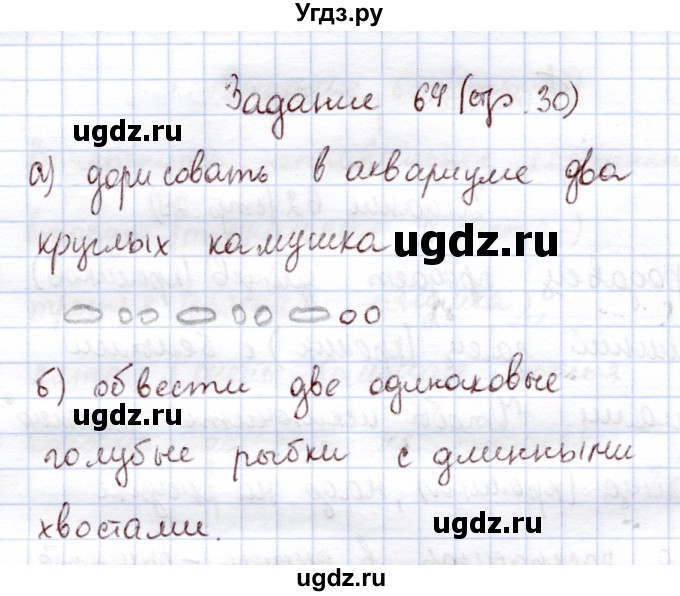 Угдз.ру
Задание 64 (стр. 30)
ugdz.ru
а) дорисовать в аквариуме два
круглых камушка
ugdz.ru
б) обвести две одинаковые
голубые рыбки с длинными
хвостами.
ugdz.ru
ugdz.ru